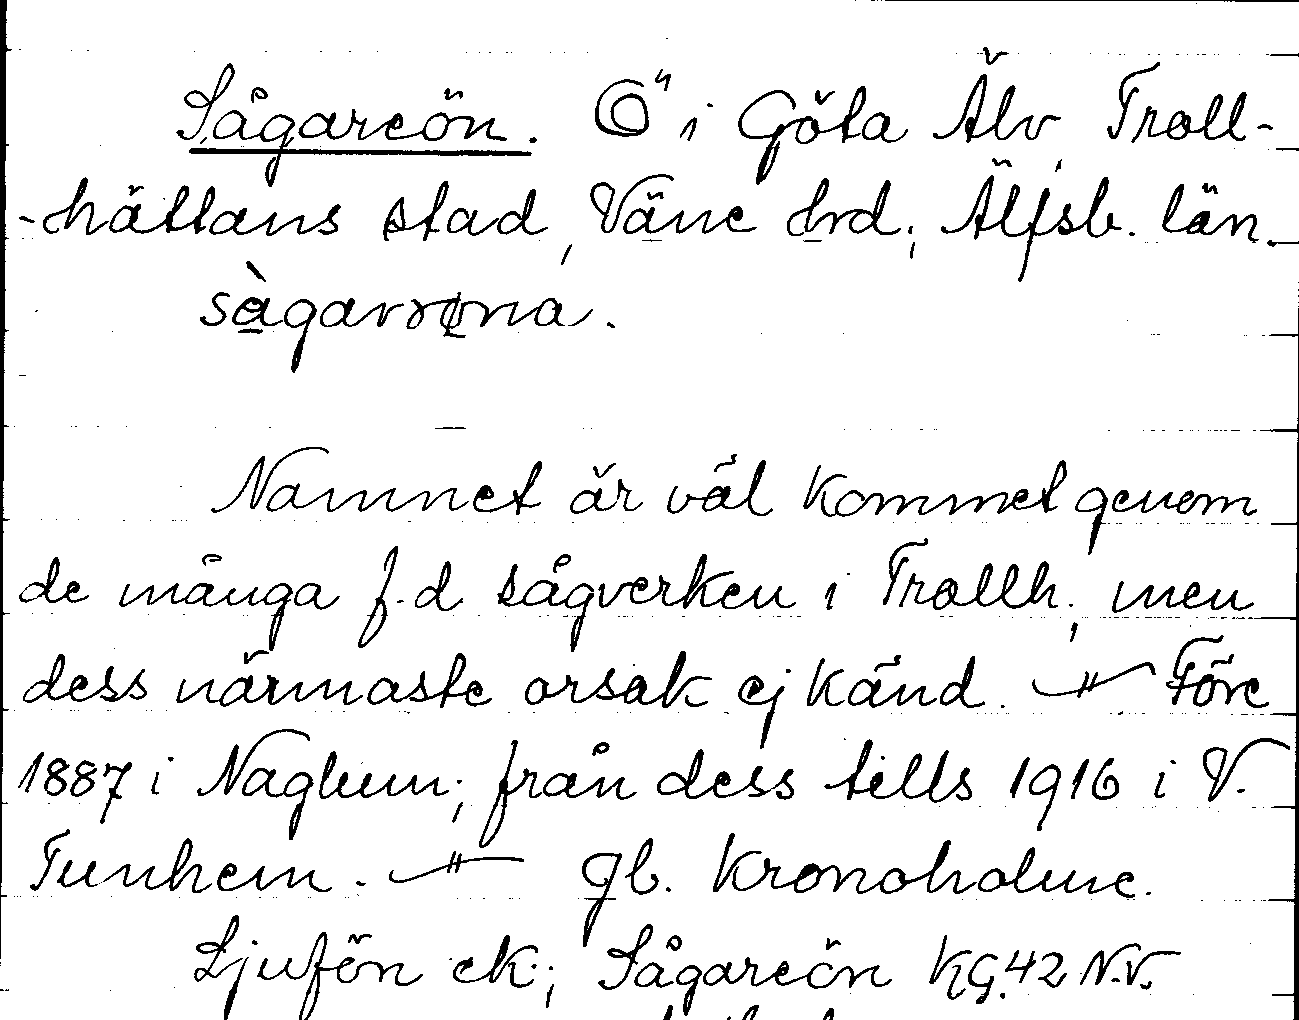 Sågareön. Ö i Göta Älv, Troll-
-hättans stad, Väne hrd; Älfsb. län.
Namnet är väl kommet genom
de många f.d sågverken i Trollh; men
dess närmaste orsak ej känd. — " — Före
1887 i Naglum; från dess tills 1916 i V.
Tunhem. — " — gb. Kronoholme.
Ljufön ek.; Sågareön KG.42 N.V.